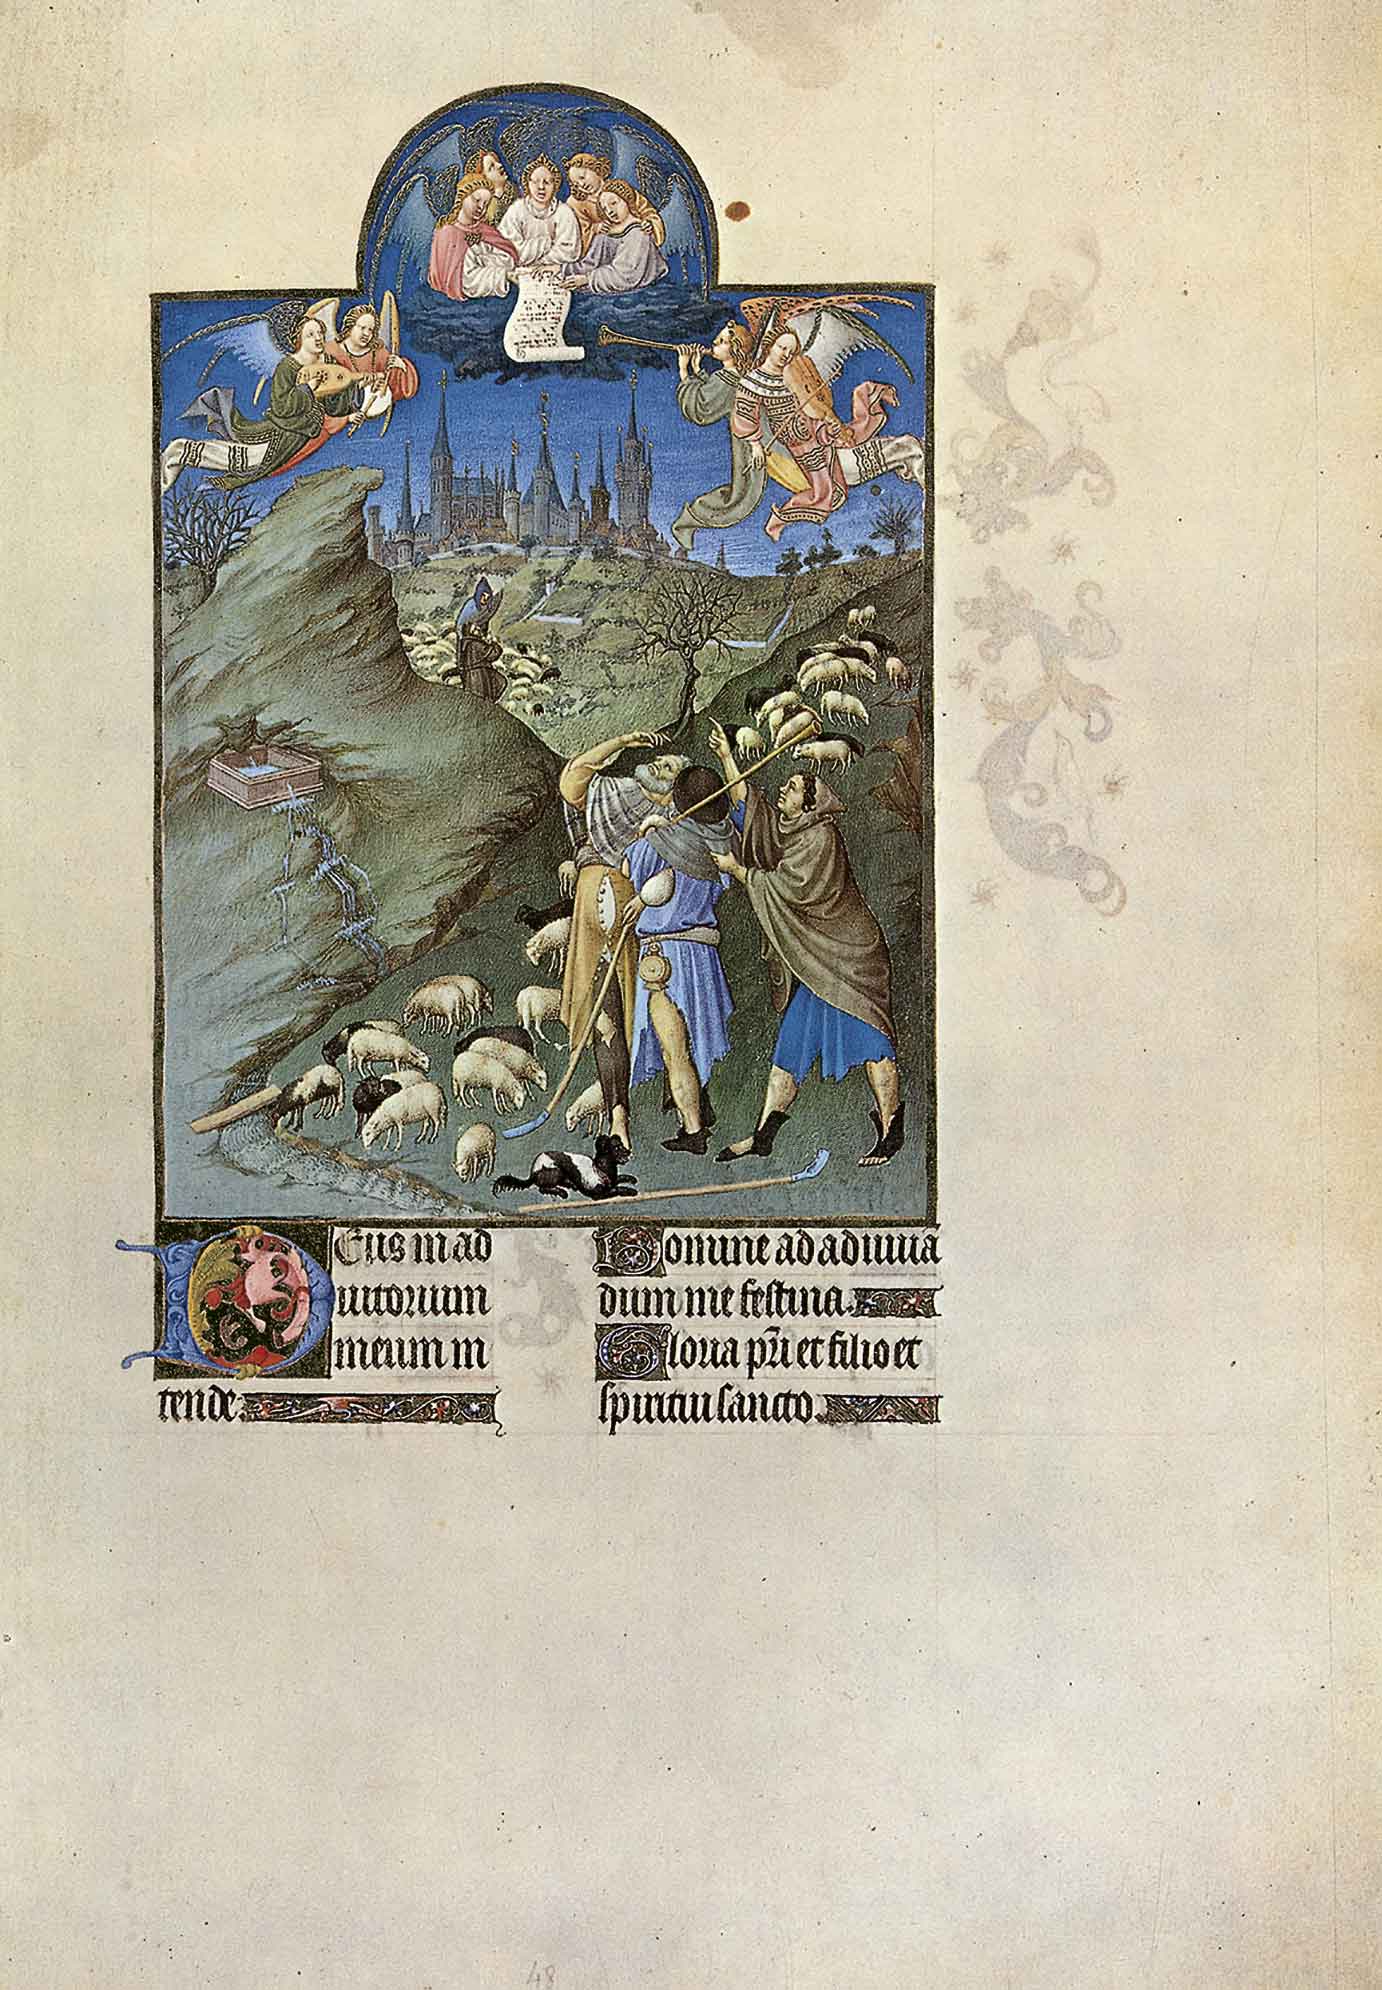 Deus in ad
iutorium
meum in
tende.
Domine ad adiuua
dum me festina.
Gloria pri et filio et
spiritui sancto.
48